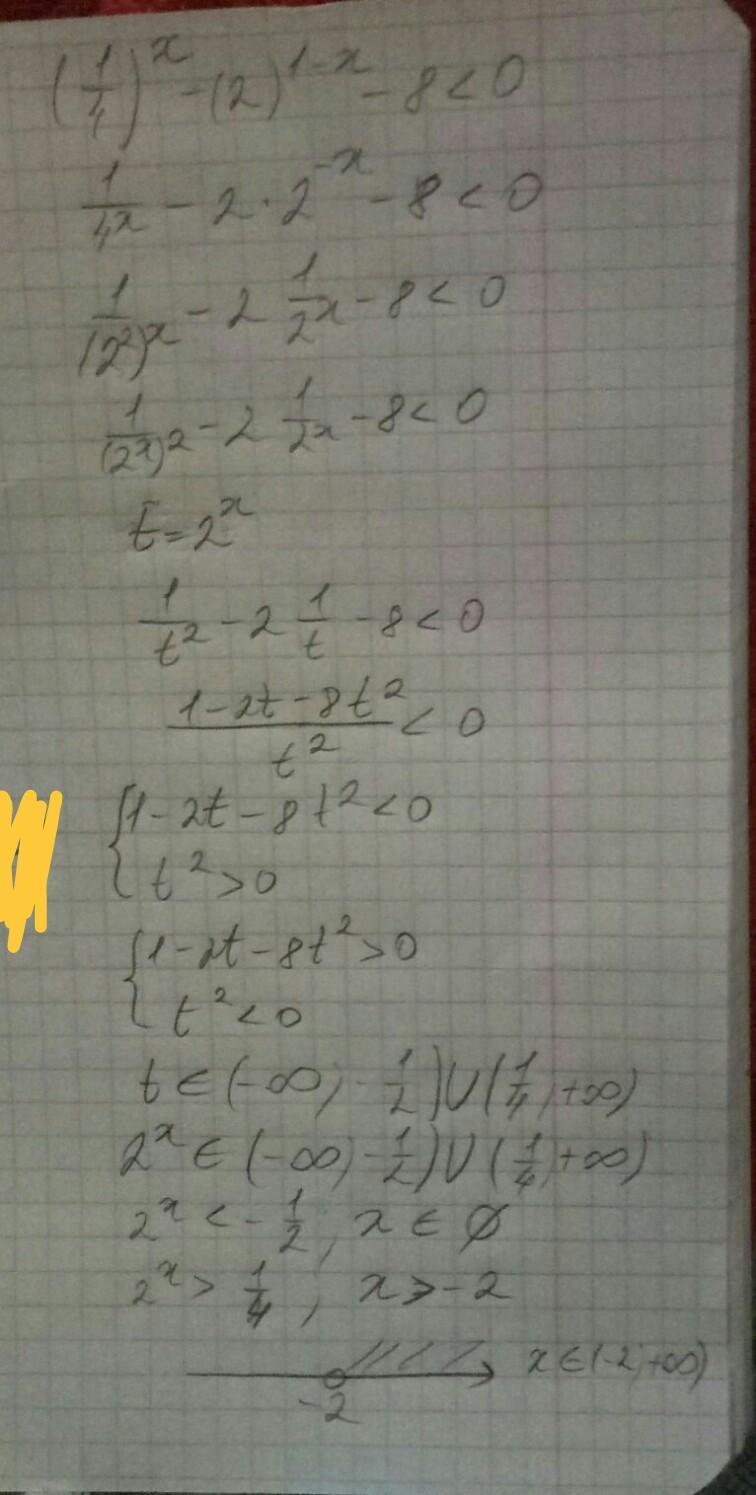 (1/4)^x - (2)^(1-x) - 8 < 0
1/4^x - 2 · 2^(-x) - 8 < 0
1/(2^2)^x - 2 1/2^x - 8 < 0
1/(2^x)^2 - 2 1/2^x - 8 < 0
t = 2^x
1/t^2 - 2 1/t - 8 < 0
(1 - 2t - 8t^2)/t^2 < 0
{1 - 2t - 8t^2 < 0
t^2 > 0
{1 - 2t - 8t^2 > 0
t^2 < 0
t ∈ (-∞, -1/2) ∪ (1/4, +∞)
2^x ∈ (-∞, -1/2) ∪ (1/4, +∞)
2^x < -1/2, x ∈ ∅
2^x > 1/4, x > -2
x ∈ (-2, +∞)
-2